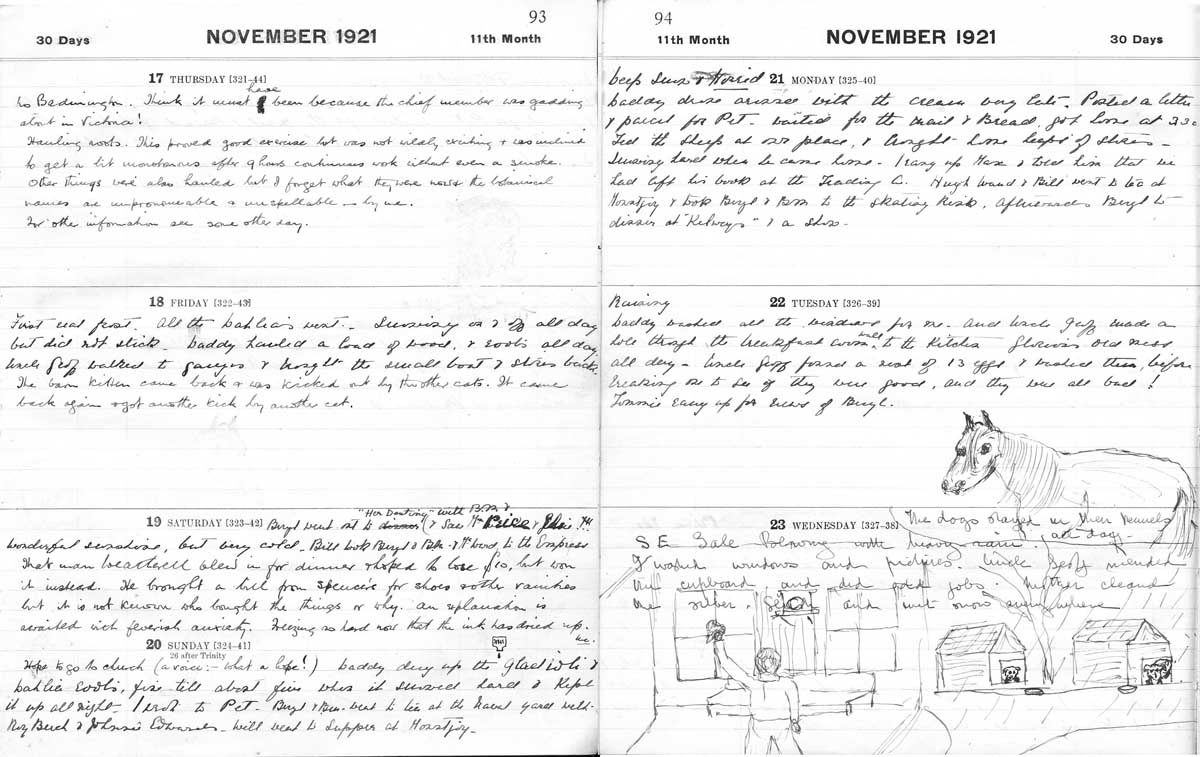 93
30 Days NOVEMBER 1921 11th Month
17 THURSDAY [321-44]
have
to Badminton. Think it must been because the chief member was gadding
about in Victoria!
Hauling roots. This proved good exercise but was not wildly exciting & was inclined
to get a bit monotonous after 9 hours continuous work without even a smoke.
Other things were also hauled but I forget what they were now & the botanical
names are unpronounceable & unspellable — by me.
For other information see some other day.
18 FRIDAY [322-43]
First real frost. All the dahlias went. Snowing on & off all day
but did not stick. Daddy hauled a load of wood, & roots all day.
Uncle Geoff walked to Ganges & brought the small boat & stores back.
The barn kitten came back & was kicked out by the other cats. It came
back again & got another kick by another cat.
19 SATURDAY [323-42] Beryl went out to dinner (& saw
"Her Destiny" with B.M. &
wonderful sunshine, but very cold. Bill took Beryl & to the Empress
That man blew in for dinner & hoped to lose $10, but won
it instead. He brought a bill from Spencer's for shoes & other vanities
but it is not known who bought the things or why. An explanation is
awaited with feverish anxiety. Freezing so hard now that the ink has dried up.
INK
20 SUNDAY [324-41]
26 after Trinity
Hope to go to church (a voice:- what a hope!) Daddy dug up the gladioli &
dahlia roots, fine till about five when it snowed hard & kept
it up all night. I wrote to Pet. Beryl & went to tea at the naval yard with
& Edwards. Will went to supper at
94
11th Month NOVEMBER 1921 30 Days
deep snow & Horrid 21 MONDAY [325-40]
Daddy drove with the cream very late. Posted a letter
& parcel for Pet. Waited for the mail & Bread, got home at 3.30
Fed the sheep at our place, & brought home heaps of stores.
Snowing hard when he came home. I rang up & told him that we
had left his book at the Trading C. Hugh & Bill went to tea at
& took Beryl & to the Skating Rink, afterwards Beryl to
dinner at "Kelways" & a show.
Raining 22 TUESDAY [326-39]
Daddy washed all the windows for me. And Uncle Geoff made a
wall
hole through the breakfast room to the kitchen. Glorious old mess
all day. Uncle Geoff found a nest of 13 eggs & washed them, before
breaking one to see if they were good, and they were all bad!
Tommie rang up for news of Beryl.
23 WEDNESDAY [327-38] The dogs stayed in their kennels
all day.
S E Gale Blowing with heavy rain.
washed windows and pictures. Uncle Geoff mended
cupboard and did odd jobs. Mother cleaned
the silver. and wet snow everywhere